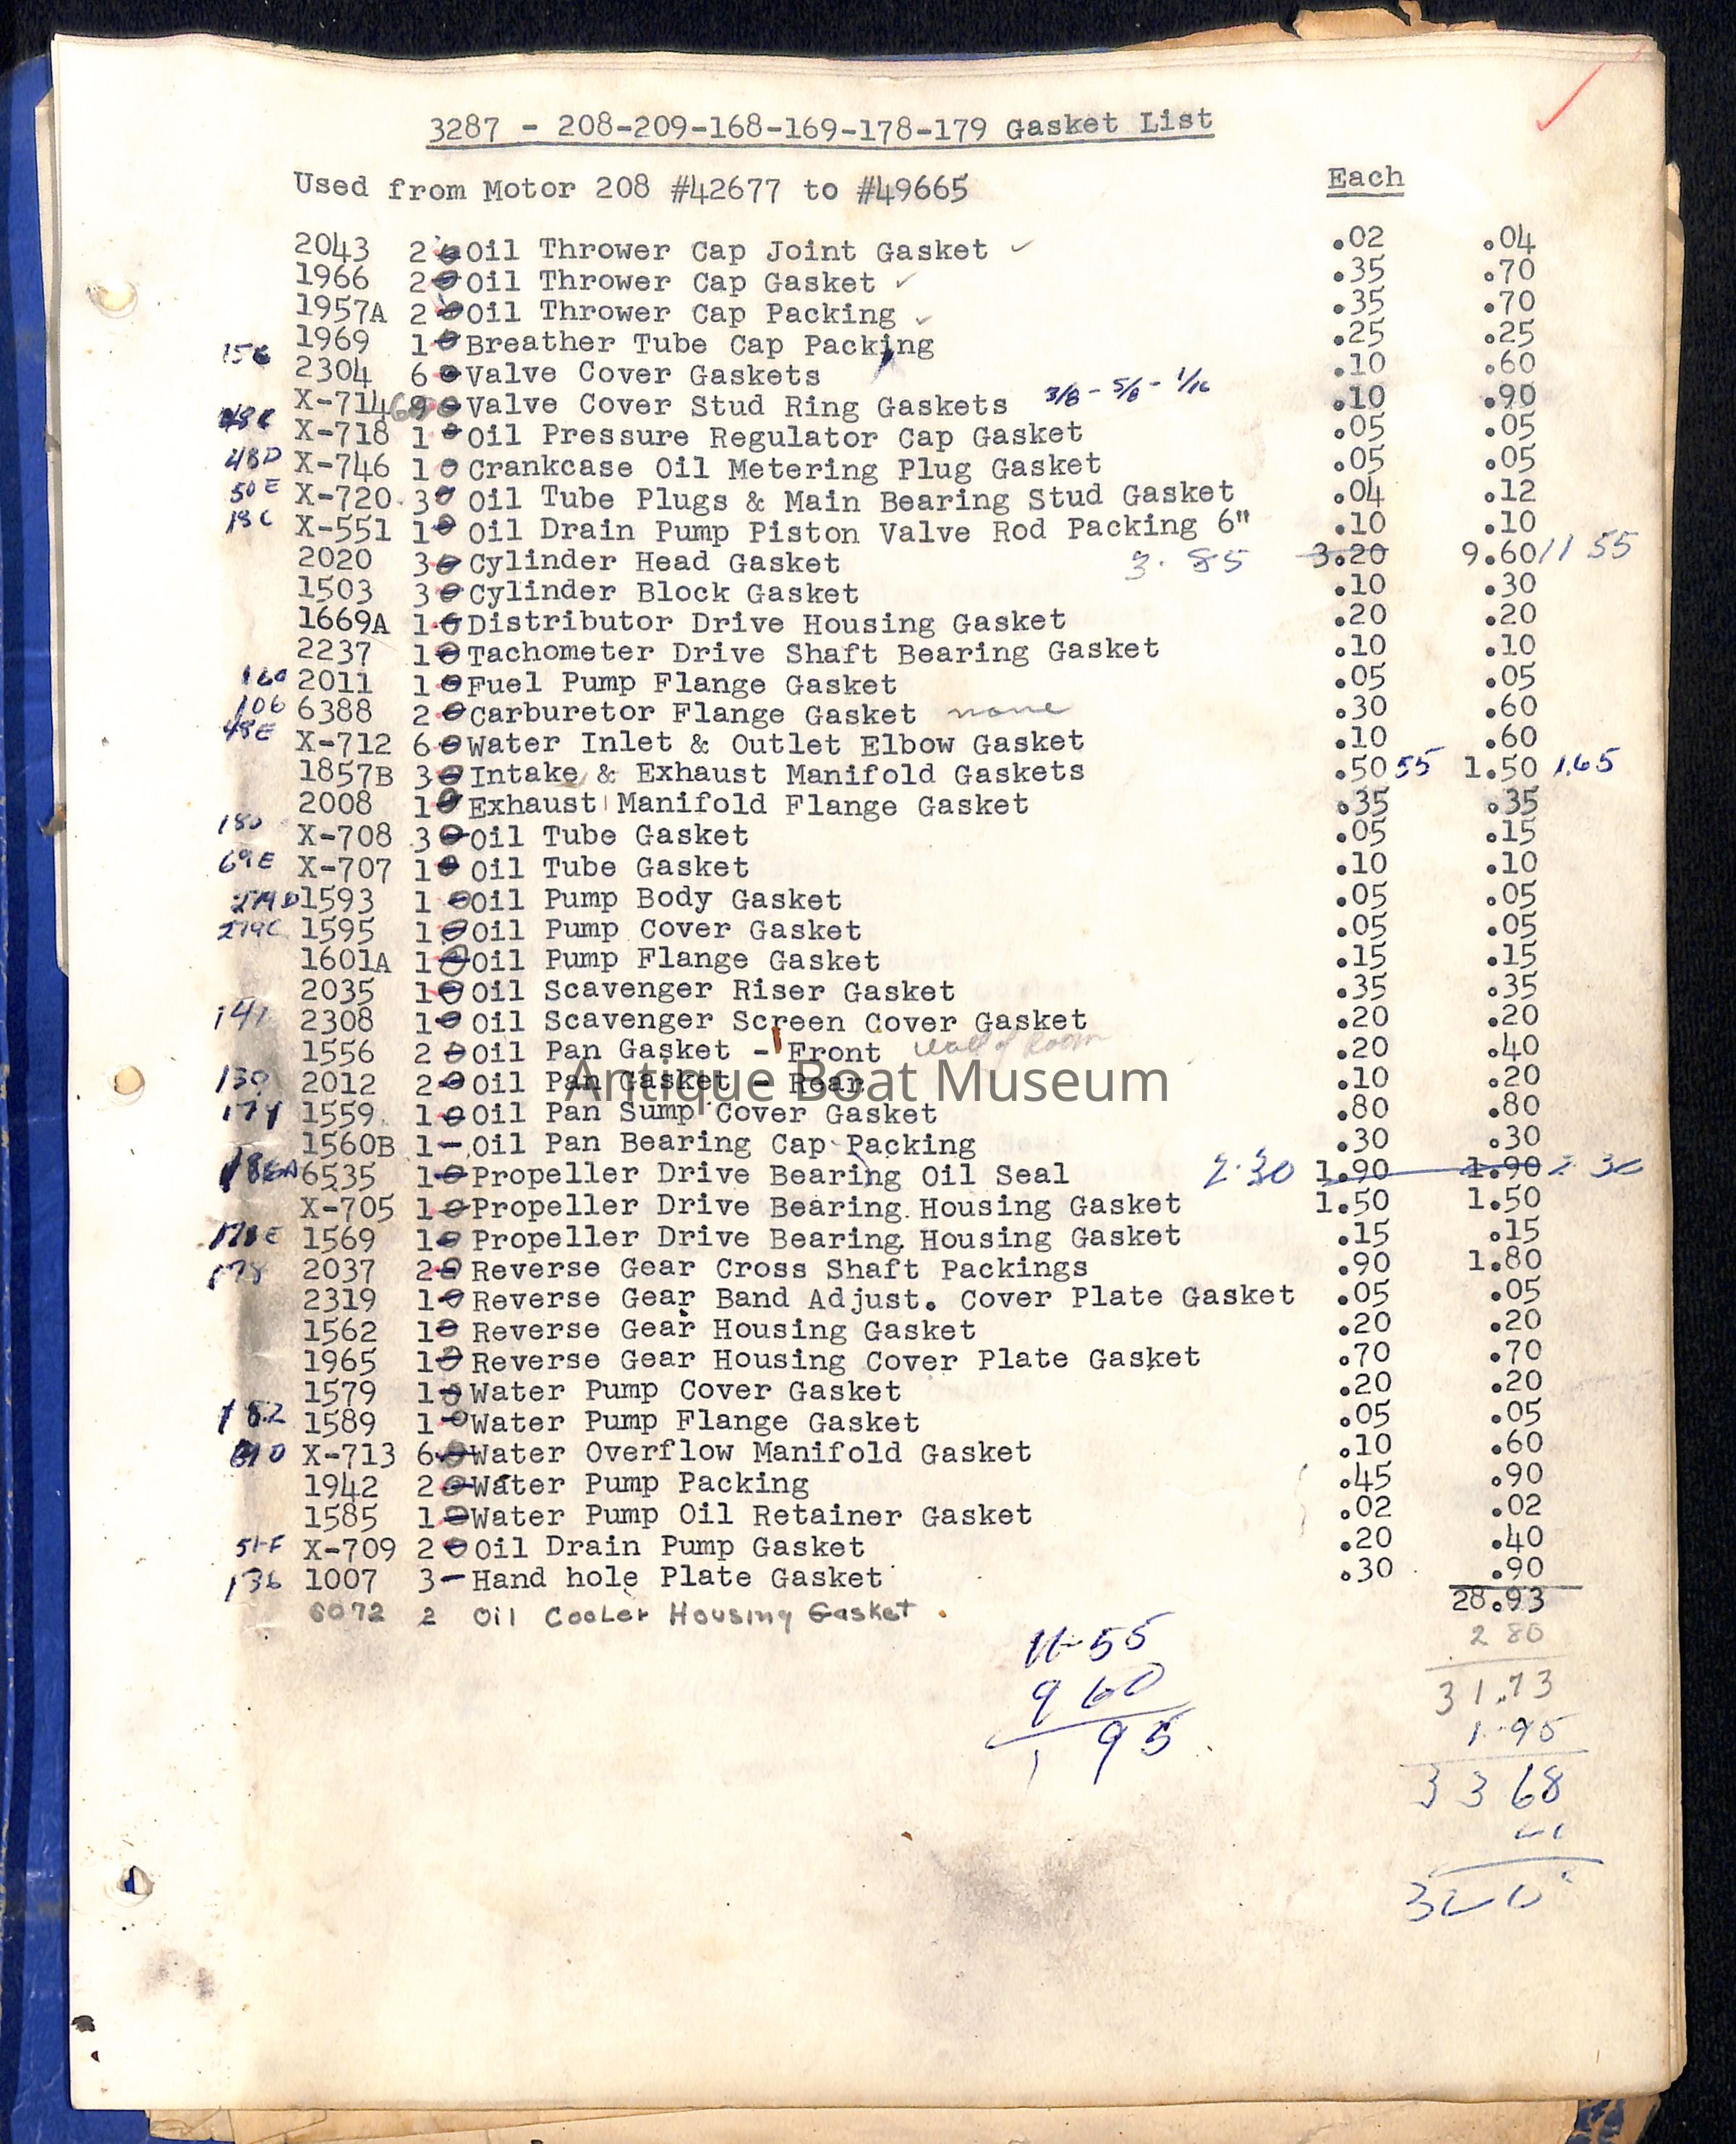 3287 - 208-209-168-169-178-179 Gasket List
Used from Motor 208 #42677 to #49665 Each
2043 2 Oil Thrower Cap Joint Gasket ✓ .02 .04
1966 2 Oil Thrower Cap Gasket ✓ .35 .70
1957A 2 Oil Thrower Cap Packing ✓ .35 .70
1969 1 Breather Tube Cap Packing .25 .25
2304 6 Valve Cover Gaskets .10 .60
X-714 Valve Cover Stud Ring Gaskets 3/8 - 5/8 - 1/16 .10 .90
X-718 1 Oil Pressure Regulator Cap Gasket .05 .05
48D X-746 1 Crankcase Oil Metering Plug Gasket .05 .05
50E X-720 3 Oil Tube Plugs & Main Bearing Stud Gasket .04 .12
X-551 1 Oil Drain Pump Piston Valve Rod Packing 6" .10 .10
2020 3 Cylinder Head Gasket 3.85 3.20 9.60 11 55
1503 3 Cylinder Block Gasket .10 .30
1669A 1 Distributor Drive Housing Gasket .20 .20
2237 1 Tachometer Drive Shaft Bearing Gasket .10 .10
2011 1 Fuel Pump Flange Gasket .05 .05
106 6388 2 Carburetor Flange Gasket none .30 .60
48E X-712 6 Water Inlet & Outlet Elbow Gasket .10 .60
1857B 3 Intake & Exhaust Manifold Gaskets .50 55 1.50 1.65
2008 1 Exhaust Manifold Flange Gasket .35 .35
X-708 3 Oil Tube Gasket .05 .15
69E X-707 1 Oil Tube Gasket .10 .10
279D 1593 1 Oil Pump Body Gasket .05 .05
279C 1595 1 Oil Pump Cover Gasket .05 .05
1601A 1 Oil Pump Flange Gasket .15 .15
2035 1 Oil Scavenger Riser Gasket .35 .35
141 2308 1 Oil Scavenger Screen Cover Gasket .20 .20
1556 2 Oil Pan Gasket - Front .20 .40
130 2012 2 Oil Pan Gasket - Rear .10 .20
Antique Boat Museum
174 1559 1 Oil Pan Sump Cover Gasket .80 .80
1560B 1- Oil Pan Bearing Cap Packing .30 .30
186A 6535 1 Propeller Drive Bearing Oil Seal 2.30 1.90 1.90 2 30
X-705 1 Propeller Drive Bearing Housing Gasket 1.50 1.50
1569 1 Propeller Drive Bearing Housing Gasket .15 .15
178 2037 2 Reverse Gear Cross Shaft Packings .90 1.80
2319 1 Reverse Gear Band Adjust. Cover Plate Gasket .05 .05
1562 1 Reverse Gear Housing Gasket .20 .20
1965 1 Reverse Gear Housing Cover Plate Gasket .70 .70
1579 1 Water Pump Cover Gasket .20 .20
182 1589 1 Water Pump Flange Gasket .05 .05
X-713 6 Water Overflow Manifold Gasket .10 .60
1942 2 Water Pump Packing .45 .90
1585 1 Water Pump Oil Retainer Gasket .02 .02
51F X-709 2 Oil Drain Pump Gasket .20 .40
136 1007 3- Hand hole Plate Gasket .30 .90
6072 2 Oil Cooler Housing Gasket 28.93
11 55 2 80
9 60 31.73
1 95 1.95
33 68